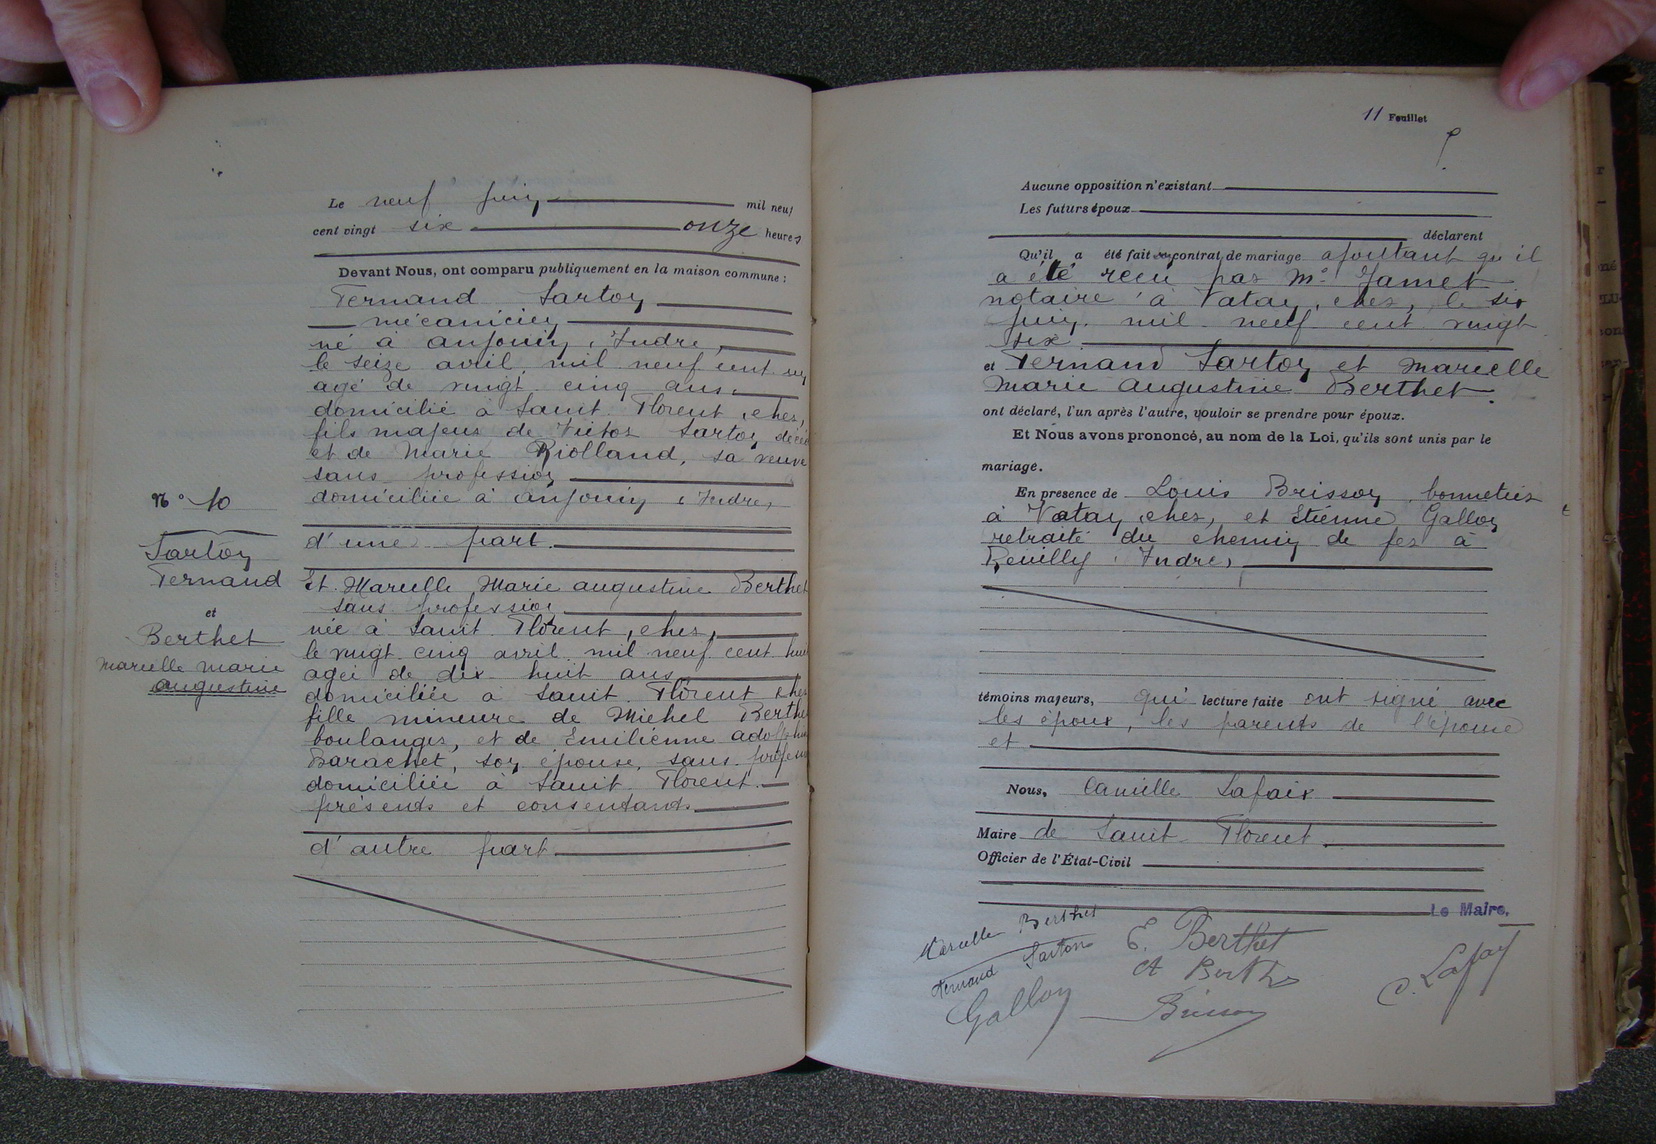 Le neuf juin mil neuf
cent vingt six onze heures
Devant Nous, ont comparu publiquement en la maison commune :
Fernand Sarton
mécanicien
né à anjouin, Indre,
le seize avril mil neuf cent un
agé de vingt cinq ans.
domicilié à Saint Florent, cher,
fils majeur de Victor Sarton, décédé
et de Marie Riolland, sa veuve
sans profession
domiciliée à anjouin, Indre,
d'une part.
Et Marcelle Marie augustine Berthet
sans profession
née à Saint Florent, cher,
le vingt cinq avril mil neuf cent huit
agée de dix huit ans
domiciliée à Saint Florent cher
fille mineure de Michel Berthet
boulanger, et de Emilienne
Barachet, son épouse, sans profession
domiciliée à Saint Florent.
présents et consentants
d'autre part.
N° 10
Sarton
Fernand
et
Berthet
Marcelle Marie
augustine
11 Feuillet
Aucune opposition n'existant
Les futurs époux
déclarent
Qu'il a été fait contrat de mariage ajoutant qu'il
a été reçu par Me Jamet
notaire à Vatan, cher, le six
juin mil neuf cent vingt
six.
et Fernand Sarton et Marcelle
Marie augustine Berthet.
ont déclaré, l'un après l'autre, vouloir se prendre pour époux.
Et Nous avons prononcé, au nom de la Loi, qu'ils sont unis par le
mariage.
En présence de Louis Brisson bonnetier
à Vatan, cher, et Etienne Gallon
retraité du chemin de fer à
Reuilly, Indre,
témoins majeurs, qui lecture faite ont signé avec
les époux, les parents de l'épouse
et
Nous, Camille Lafaix
Maire de Saint Florent
Officier de l'État-Civil
Le Maire,
Marcelle Berthet
Fernand Sarton
E. Berthet
Gallon
Brisson